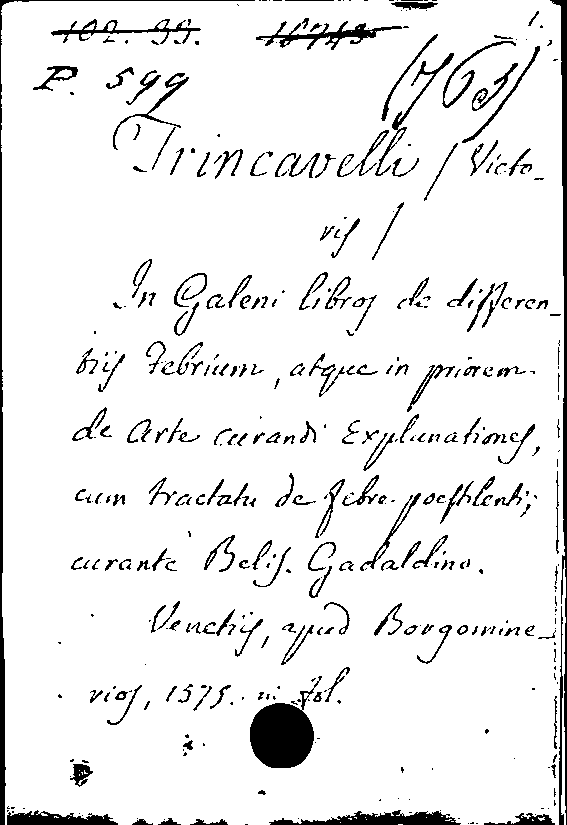 102. 33. 18743 1.
P. 599 (763)
Trincavelli / Victo-
ris /
In Galeni libros de differen-
tiis Febrium, atque in priorem
de Arte curandi Explanationes,
cum tractatu de febre poestilenti;
curante Belis. Gadaldino.
Venetiis, apud Borgomine-
rios, 1575. in fol.